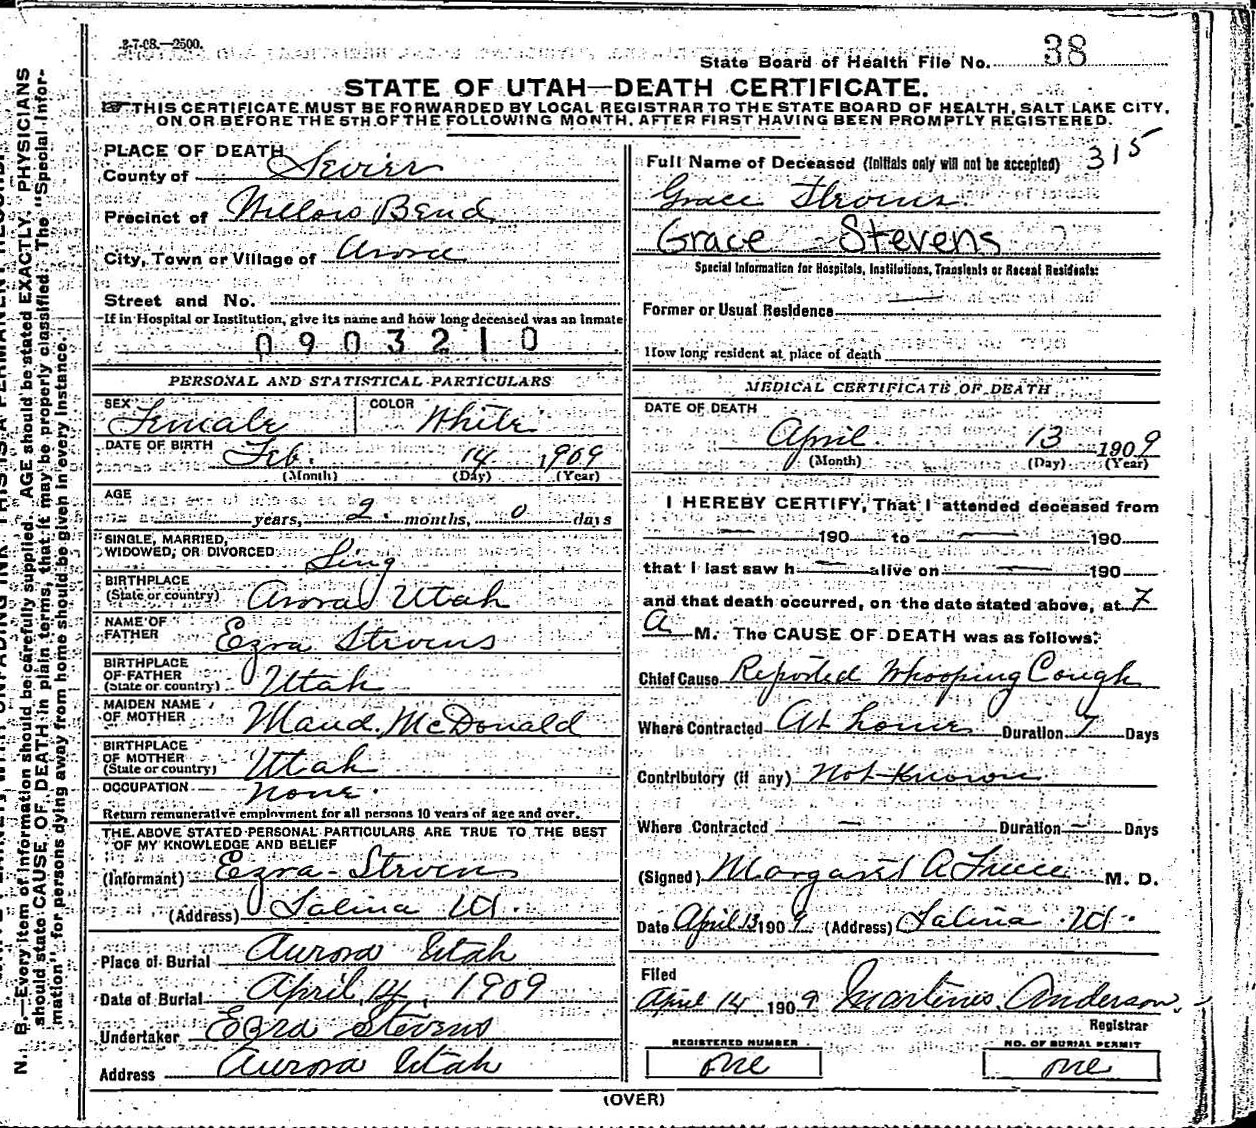 2-7-08.—2500.
State Board of Health File No. 38
STATE OF UTAH—DEATH CERTIFICATE.
THIS CERTIFICATE MUST BE FORWARDED BY LOCAL REGISTRAR TO THE STATE BOARD OF HEALTH, SALT LAKE CITY,
ON OR BEFORE THE 5TH OF THE FOLLOWING MONTH, AFTER FIRST HAVING BEEN PROMPTLY REGISTERED.
PLACE OF DEATH
County of Sevier
Precinct of Willow Bend
City, Town or Village of Arora
Street and No.
If in Hospital or Institution, give its name and how long deceased was an inmate
0903210
PERSONAL AND STATISTICAL PARTICULARS
SEX Female COLOR White
DATE OF BIRTH Feb. 14 1909
(Month) (Day) (Year)
AGE
years, 2 months, 0 days
SINGLE, MARRIED,
WIDOWED, OR DIVORCED Sing
BIRTHPLACE
(State or country) Arora Utah
NAME OF
FATHER Ezra Stevens
BIRTHPLACE
OF FATHER
(State or country) Utah
MAIDEN NAME
OF MOTHER Maud. McDonald
BIRTHPLACE
OF MOTHER
(State or country) Utah
OCCUPATION none.
Return remunerative employment for all persons 10 years of age and over.
THE ABOVE STATED PERSONAL PARTICULARS ARE TRUE TO THE BEST
OF MY KNOWLEDGE AND BELIEF
(Informant) Ezra Stevens
(Address) Salina Ut.
Place of Burial Aurora Utah
Date of Burial April, 14, 1909
Undertaker Ezra Stevens
Address Aurora Utah
Full Name of Deceased (Initials only will not be accepted) 315
Grace Stevens
Grace Stevens
Special Information for Hospitals, Institutions, Transients or Recent Residents:
Former or Usual Residence
How long resident at place of death
MEDICAL CERTIFICATE OF DEATH
DATE OF DEATH
April 13 1909
(Month) (Day) (Year)
I HEREBY CERTIFY, That I attended deceased from
— 190 to — 190
that I last saw h — alive on — 190
and that death occurred, on the date stated above, at 7
A M. The CAUSE OF DEATH was as follows:
Chief Cause Reported Whooping Cough
Where Contracted At home Duration 7 Days
Contributory (if any) Not Known
Where Contracted — Duration — Days
(Signed) Margaret A Freece M. D.
Date April 13 1909 (Address) Salina Ut.
Filed
April 14 1909 Martinus Anderson
Registrar
REGISTERED NUMBER
one
NO. OF BURIAL PERMIT
one
(OVER)
N. B.—Every item of information should be carefully supplied. AGE should be stated EXACTLY. PHYSICIANS
should state CAUSE OF DEATH in plain terms, that it may be properly classified. The "Special Infor-
mation" for persons dying away from home should be given in every instance.